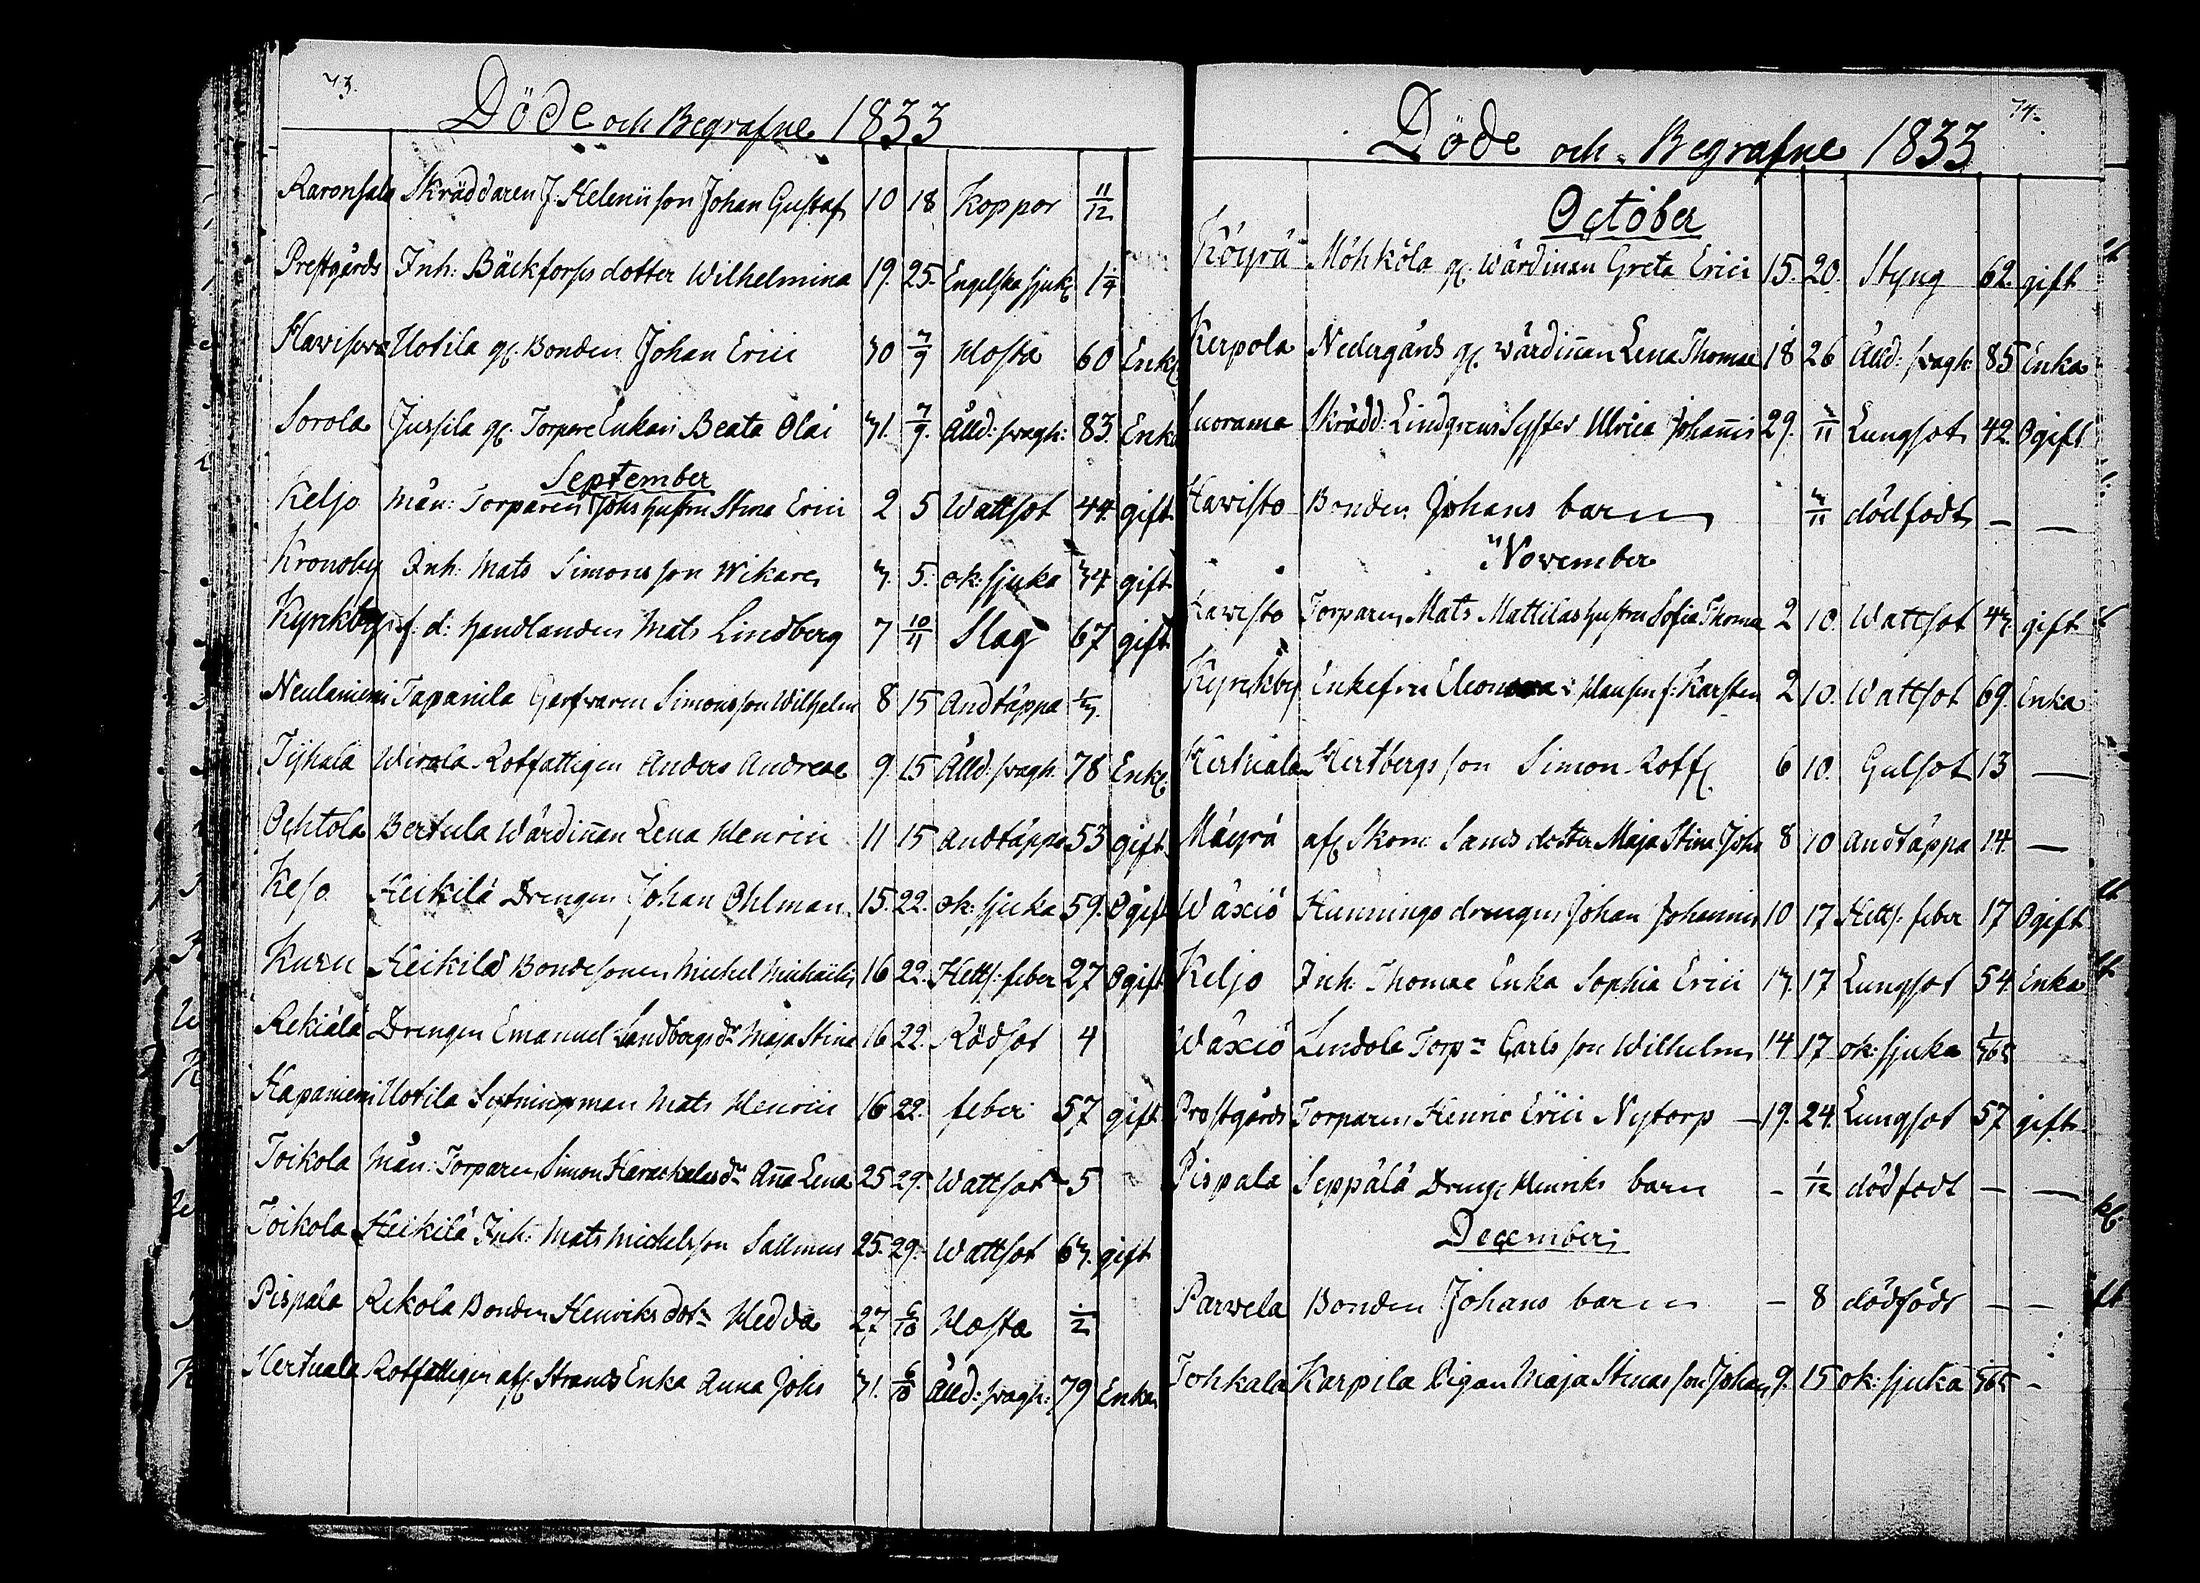 73.
Döde och Begrafne 1833
Aaronsala Skräddaren J. Helenii son Johan Gustaf 10 18 Koppor 11/12
Prestgårds Inh: Bäckforss dotter Wilhelmina 19. 25. Engelska sjuk 1 1/4
Havisevа Uotila gl. Bonden Johan Erici 30 7/9 Hosta 60 Enkl
Sorola Jussila gl. Torpare Enkan Beata Olai 31. 7/9. Ålld: svagh: 83. Enka
September
Keljo Mån: Torparen Johs hustru Stina Erici 2 5 Wattsot 44. gift
Kronoby Inh: Mats Simons son Wikare 3. 5. ok: sjuka 34 gift
Kyrckby f. d: handlanden Mats Lindberg 7 10/11 Slag 67 gift
Neulaniemi Tapanila Garfvaren Simons son Wilhelm 8 15 Andtäppa
Tijhala Wirala Rotfattigen Anders Andreae 9. 15 Ålld: svagh: 78 Enkl.
Ochtola Bertula Wärdinnan Lena Henrici 11 15 Andtäppa 53 gift
Keso Heikilä Drengen Johan Ohlman. 15. 22. ok: sjuka 59. Ogift
Kuru Heikilä Bondesonen Michel Michaelis 16 22. Hetts: feber 27 Ogift
Rekiälä Drengen Emanuel Sandbergs dr Maja Stina 16 22. Rödsot 4
Hapaniemi Uotila Sytningsman Mats Henrici 16 22. feber 57 gift
Toikola Mån: Torparen Simon Harackalas dr Anna Lena 25 29. Wattsot 5
Toikola Heikilä Inh: Mats Michelsson Sallmens 25. 29. Wattsot 63. gift
Pispala Rekola Bonden Henriks dotr Hedda 27 6/10 Hosta 1/2
Hertuala Rotfattigen afl. Strands Enka Anna Johs 31. 6/10 Ålld: svagh: 79 Enka
74.
Döde och Begrafne 1833
October
Köyrä Möhkölä gl. Wärdinnan Greta Erici 15. 20. Styng 62. gift
Kerpola Nedergårds gl. wärdinnan Lena Thomae 18 26 Ålld: svagh: 85 Enka
Luorama Skrädd: Lindgrens Syster Ulrica Johannis 29. 3/11 Lungsot 42. Ogift
Havisto Bonden Johans barn 3/11 dödfödt – –
November
Havisto Torparen Mats Mattilas hustru Sofia Thomae 2 10. Wattsot 43. gift
Kyrckby Enkefru Eleonora Hansen f: Karsten 2 10. Wattsot 69. Enka
Hertuala Hertbergs son Simon Rotf. 6 10. Gulsot 13 –
Mäyrä afl. Skom: Sands dotter Maja Stina Johs 8 10 Andtäppa 14. –
Wäxiö Hunnings drengen Johan Johannis 10 17 Hetts: feber 17 Ogift
Keljo Inh: Thomae Enka Sophia Erici 13. 17 Lungsot 54. Enka
Wäxiö Lindola Torpn Carls son Wilhelm 14 17 ok: sjuka 1/365
Prestgårds Torparen Henric Erici Nytorp – 19. 24. Lungsot 57 gift.
Pispala Seppälä Dreng: Henriks barn – 1/12 dödfödt – –
December
Parvela Bonden Johans barn – 8 dödfödt – –
Tohkala Karpila Pigan Maja Stinas son Johan 9. 15 ok: sjuka –